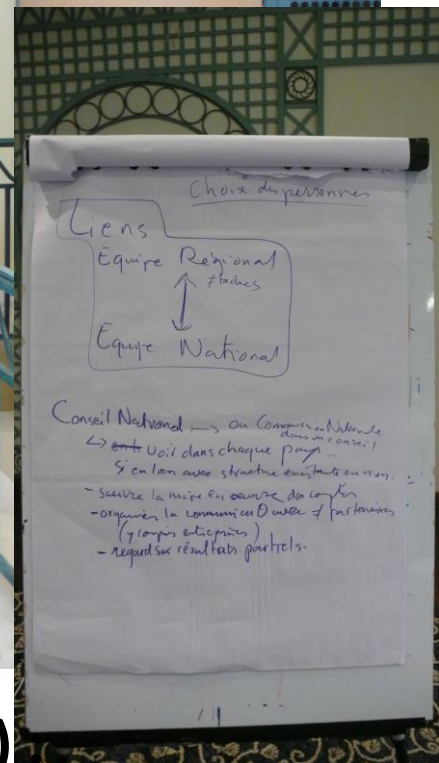 Choix des personnes
Liens
Équipe Régional
≠ taches
Équipe National
Conseil National → ou Commission Nationale
dans un conseil
↳ Voir dans chaque pays...
Si en lien avec structure existante ou non.
- suivre la mise en oeuvre des comptes
- organiser la communica° avec ≠ partenaires
(y compris entreprises)
- regard sur résultats partiels.
)